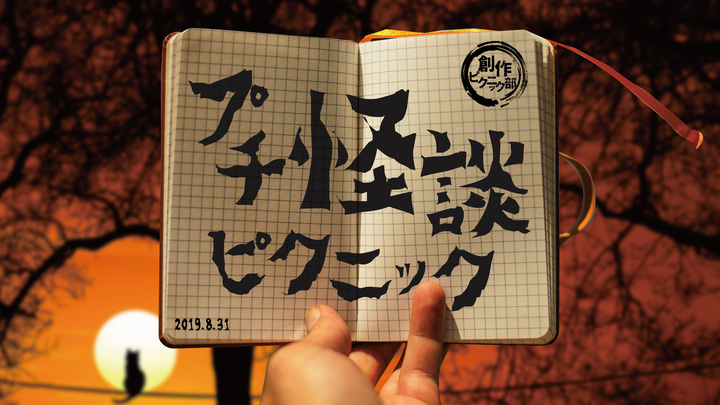 創作
ピクニック部
プチ怪談
ピクニック
2019.8.31